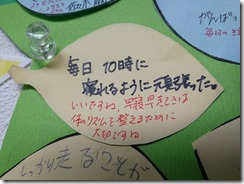 佐々木
がんばっ
毎日の
毎日 10時に
寝れるように頑張った。
いいですね。早寝早起きは
体のリズムを整えるために
大切ですね
しっかり走ることが